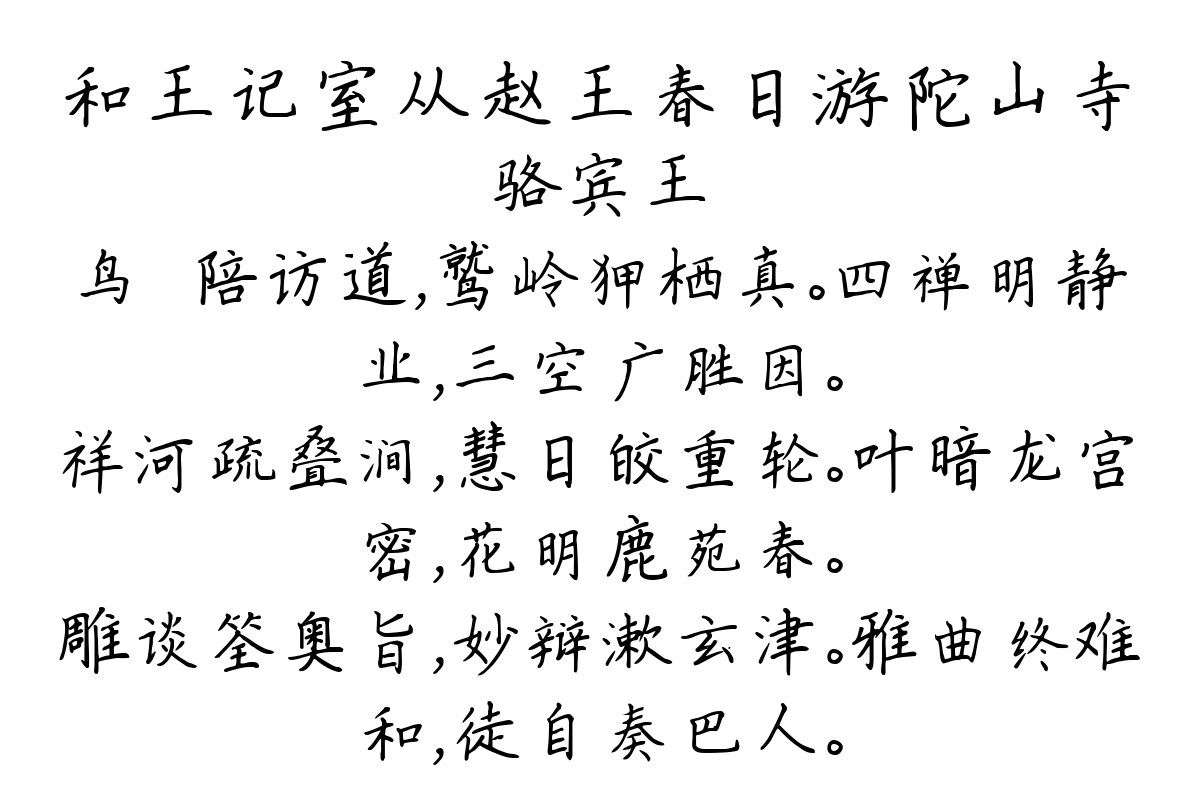 和王记室从赵王春日游陀山寺
骆宾王
鸟 陪访道,鹫岭狎栖真。四禅明静
业,三空广胜因。
祥河疏叠涧,慧日皎重轮。叶暗龙宫
密,花明鹿苑春。
雕谈筌奥旨,妙辩漱玄津。雅曲终难
和,徒自奏巴人。